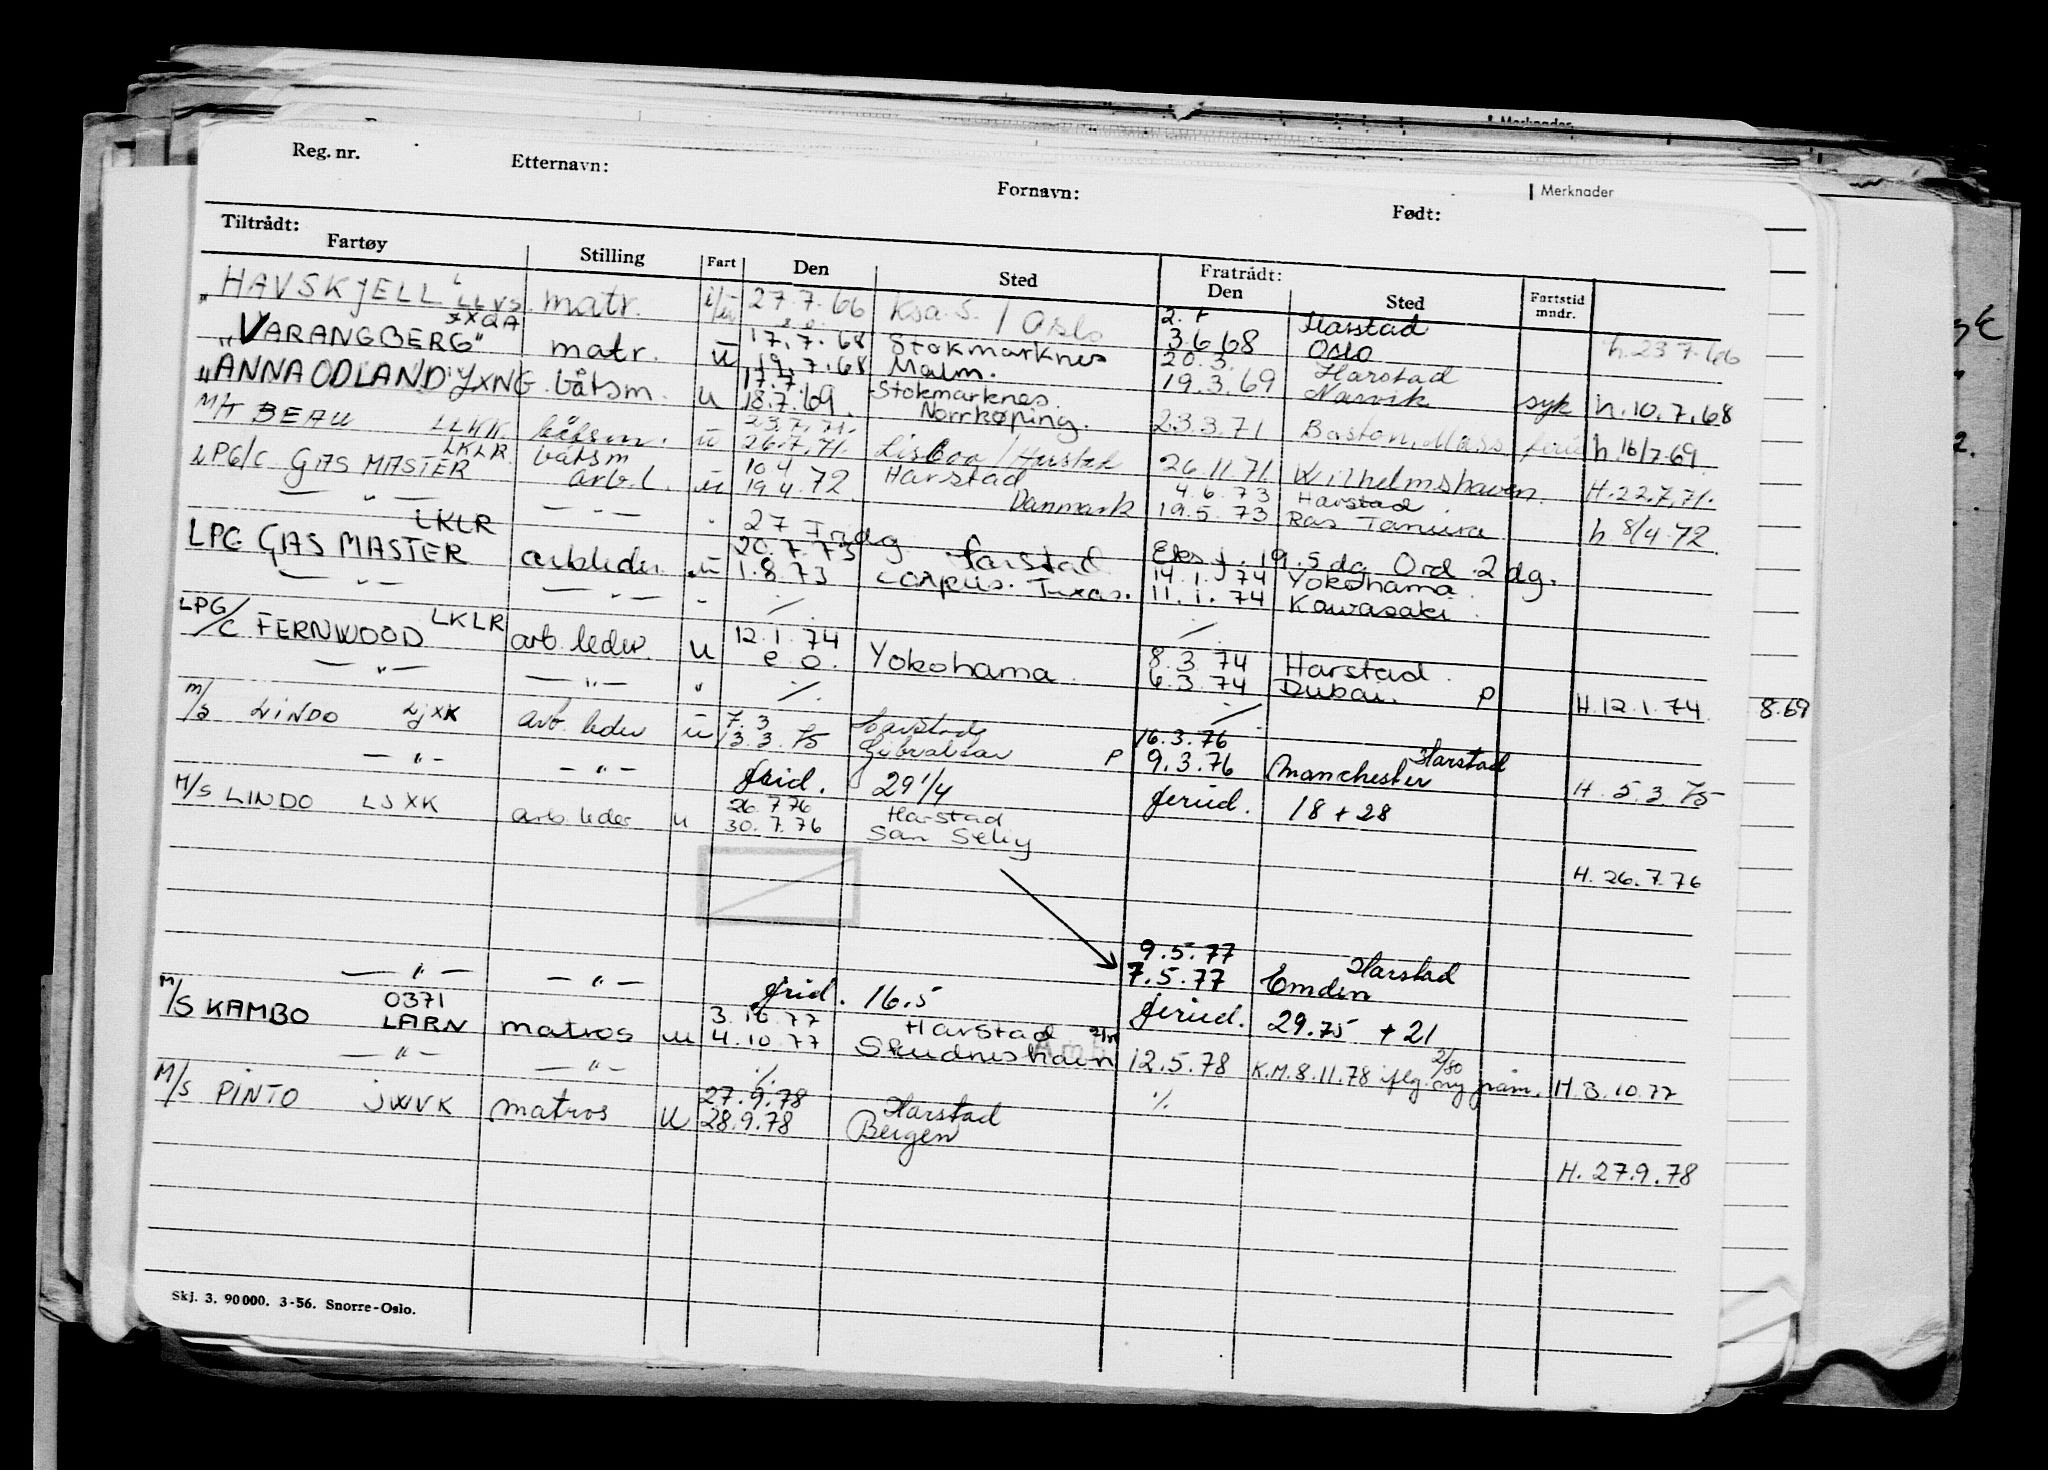 Merknader
Reg. nr. Etternavn: Fornavn: Født: Merknader
Tiltrådt: Fratrådt:
Fartøy Stilling Fart Den Sted Den Sted Fartstid mndr.
HAVSKJELL LLVS matr. 27.7.66 / Oslo 3.6.68 Harstad Oslo h. 23.7.66
"VARANGBERG" JXQA matr. ū 17.7.68 Stokmarknes 20.3. Harstad
19.7.68 Malm. 19.3.69 Narvik syk h. 10.7.68
"ANNA ODLAND" JXNG båtsm. u 17.7. Stokmarknes
18.7.69. Norrköping. 23.3.71 Boston, Mass h. 16/7-69
M/T BEAU LLKK båtsm. ū 23.7.71.
26.7.71. Lissboa / Harstad 26.11.71. Wilhelmshaven. H. 22.7.71.
LPG/C GAS MASTER LKLR båtsm arb.l. ū 10.4 Harstad 4.6.73 Harstad
19.4.72. Danmark 19.5.73 Ras Tanura h. 8/4-72.
— " — — " — 27 Eks f. 19.5 dg Ord. 2 dg.
LPG GAS MASTER LKLR arbleder ū 20.7.73 Harstad 14.1.74 Yokohama
1.8.73 Corpus. Texas. 11.1.74 Kawasaki.
— " — — " — ./. ./.
LPG/C FERNWOOD LKLR arb. leder. u 12.1.74 8.3.74 Harstad.
e.o. Yokohama. 6.3.74 Dubai. P H. 12.1.74. 8.69
— " — — " — " ./. ./.
M/S LINDO LJXK arb. leder ū 7.3 Harstad 16.3.76 Harstad
13.3.75 Gibraltar P 9.3.76 Manchester H. 5.3.75
— " — — " — frid. 29 1/4 feried. 18 + 28
M/S LINDO LJXK arb. leder u 26.7.76 Harstad
30.7.76 San
H. 26.7.76
9.5.77 Harstad
7.5.77 Emden
— " — — " — frid. 16.5 feried. 29.75 + 21
M/S KAMBO 0371 LARN matros u 3.10.77 Harstad
4.10.77 Skudneshavn 12.5.78 K.M. 8.11.78 iflg. ny H. 3.10.77
— " — — " — ./. ./.
M/S PINTO JWVK matros u 27.9.78 Harstad
28.9.78 Bergen
H. 27.9.78
Skj. 3. 90 000. 3-56. Snorre-Oslo.